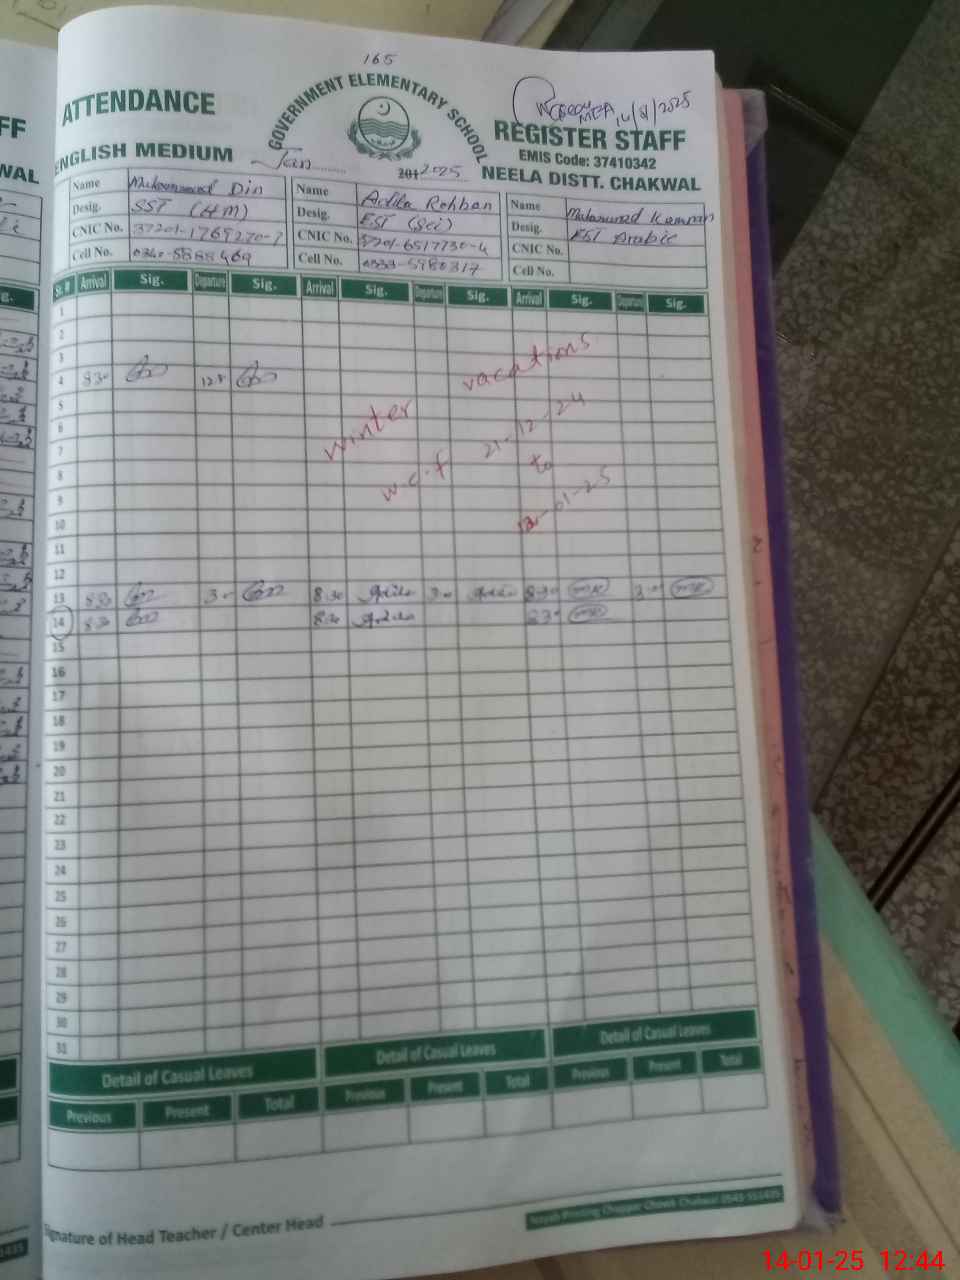 165
ATTENDANCE
GOVERNMENT ELEMENTARY SCHOOL
14/1/2025
REGISTER STAFF
EMIS Code: 37410342
ENGLISH MEDIUM
Jan
2012025
NEELA DISTT. CHAKWAL
Name Muhammad Din Name Adila Rehban Name Muhammad Kamran
Desig. SST (HM) Desig. EST (Sci) Desig. EST Arabic
CNIC No. 37201-1769270-7 CNIC No. 37201-6517730-4 CNIC No.
Cell No. 0340-5888469 Cell No. 0333-5980317 Cell No.
Sr. # Arrival Sig. Departure Sig. Arrival Sig. Departure Sig. Arrival Sig. Departure Sig.
1
2
3
4 8 30
5
6
7
8
9
10
11
12
13 8 30 3 00 8 30 3 00 8 30 3 00
14 8 30 8 30 8 30
15
16
17
18
19
20
21
22
23
24
25
26
27
28
29
30
31
winter vacations
w.e.f 21-12-24
to
12-01-25
Detail of Casual Leaves Detail of Casual Leaves Detail of Casual Leaves
Previous Present Total Previous Present Total Previous Present Total
Signature of Head Teacher / Center Head
14-01-25 12:44